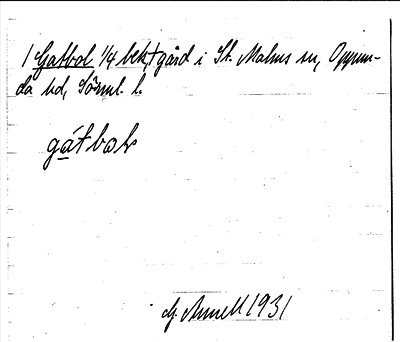 1 Gatbol 1/4 bek. gård i St. Malms sn, Oppun-
da hd, Sörml. l.
gátbols
G. Annell 1931